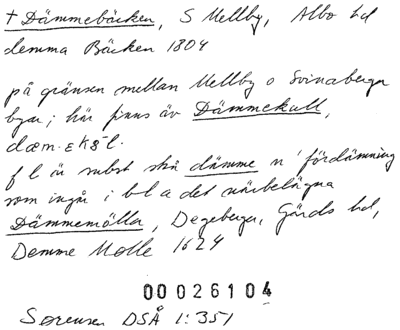 † Dämmebäcken, S Mellby, Albo hd
demma Bäcken 1804
på gränsen mellan Mellby o Svinaberga
byar; här finns äv Dämmekull,
dæm.ekɞ́l.
f l är subst skå dämme n 'fördämning
som ingår i bl a det närbelägna
Dämmemölla, Degeberga, Gärds hd,
Demme Mølle 1624
00026104
Sørensen DSÅ 1:351